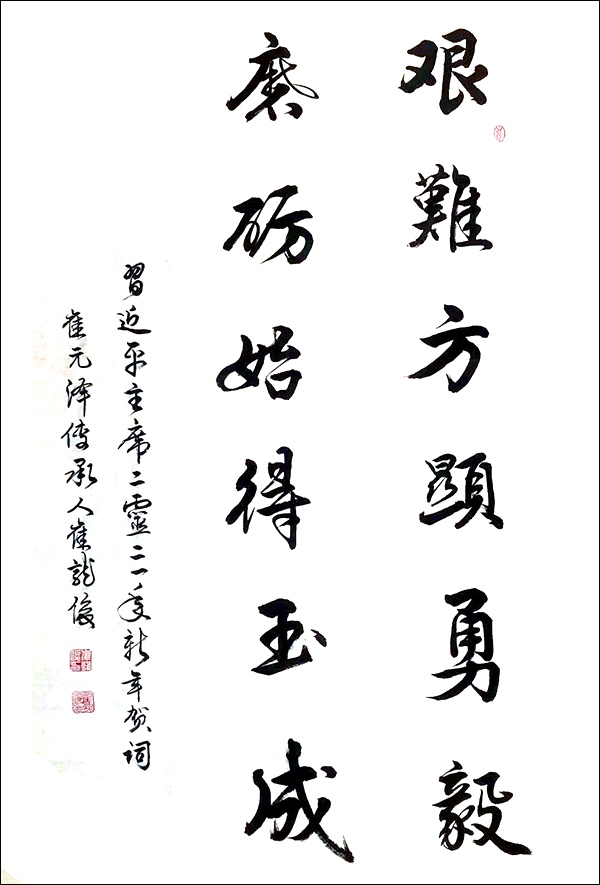 艰難方顯勇毅
磨砺始得玉成
習近平主席二靈二一年新年贺词
崔元泽传承人崔龍俊